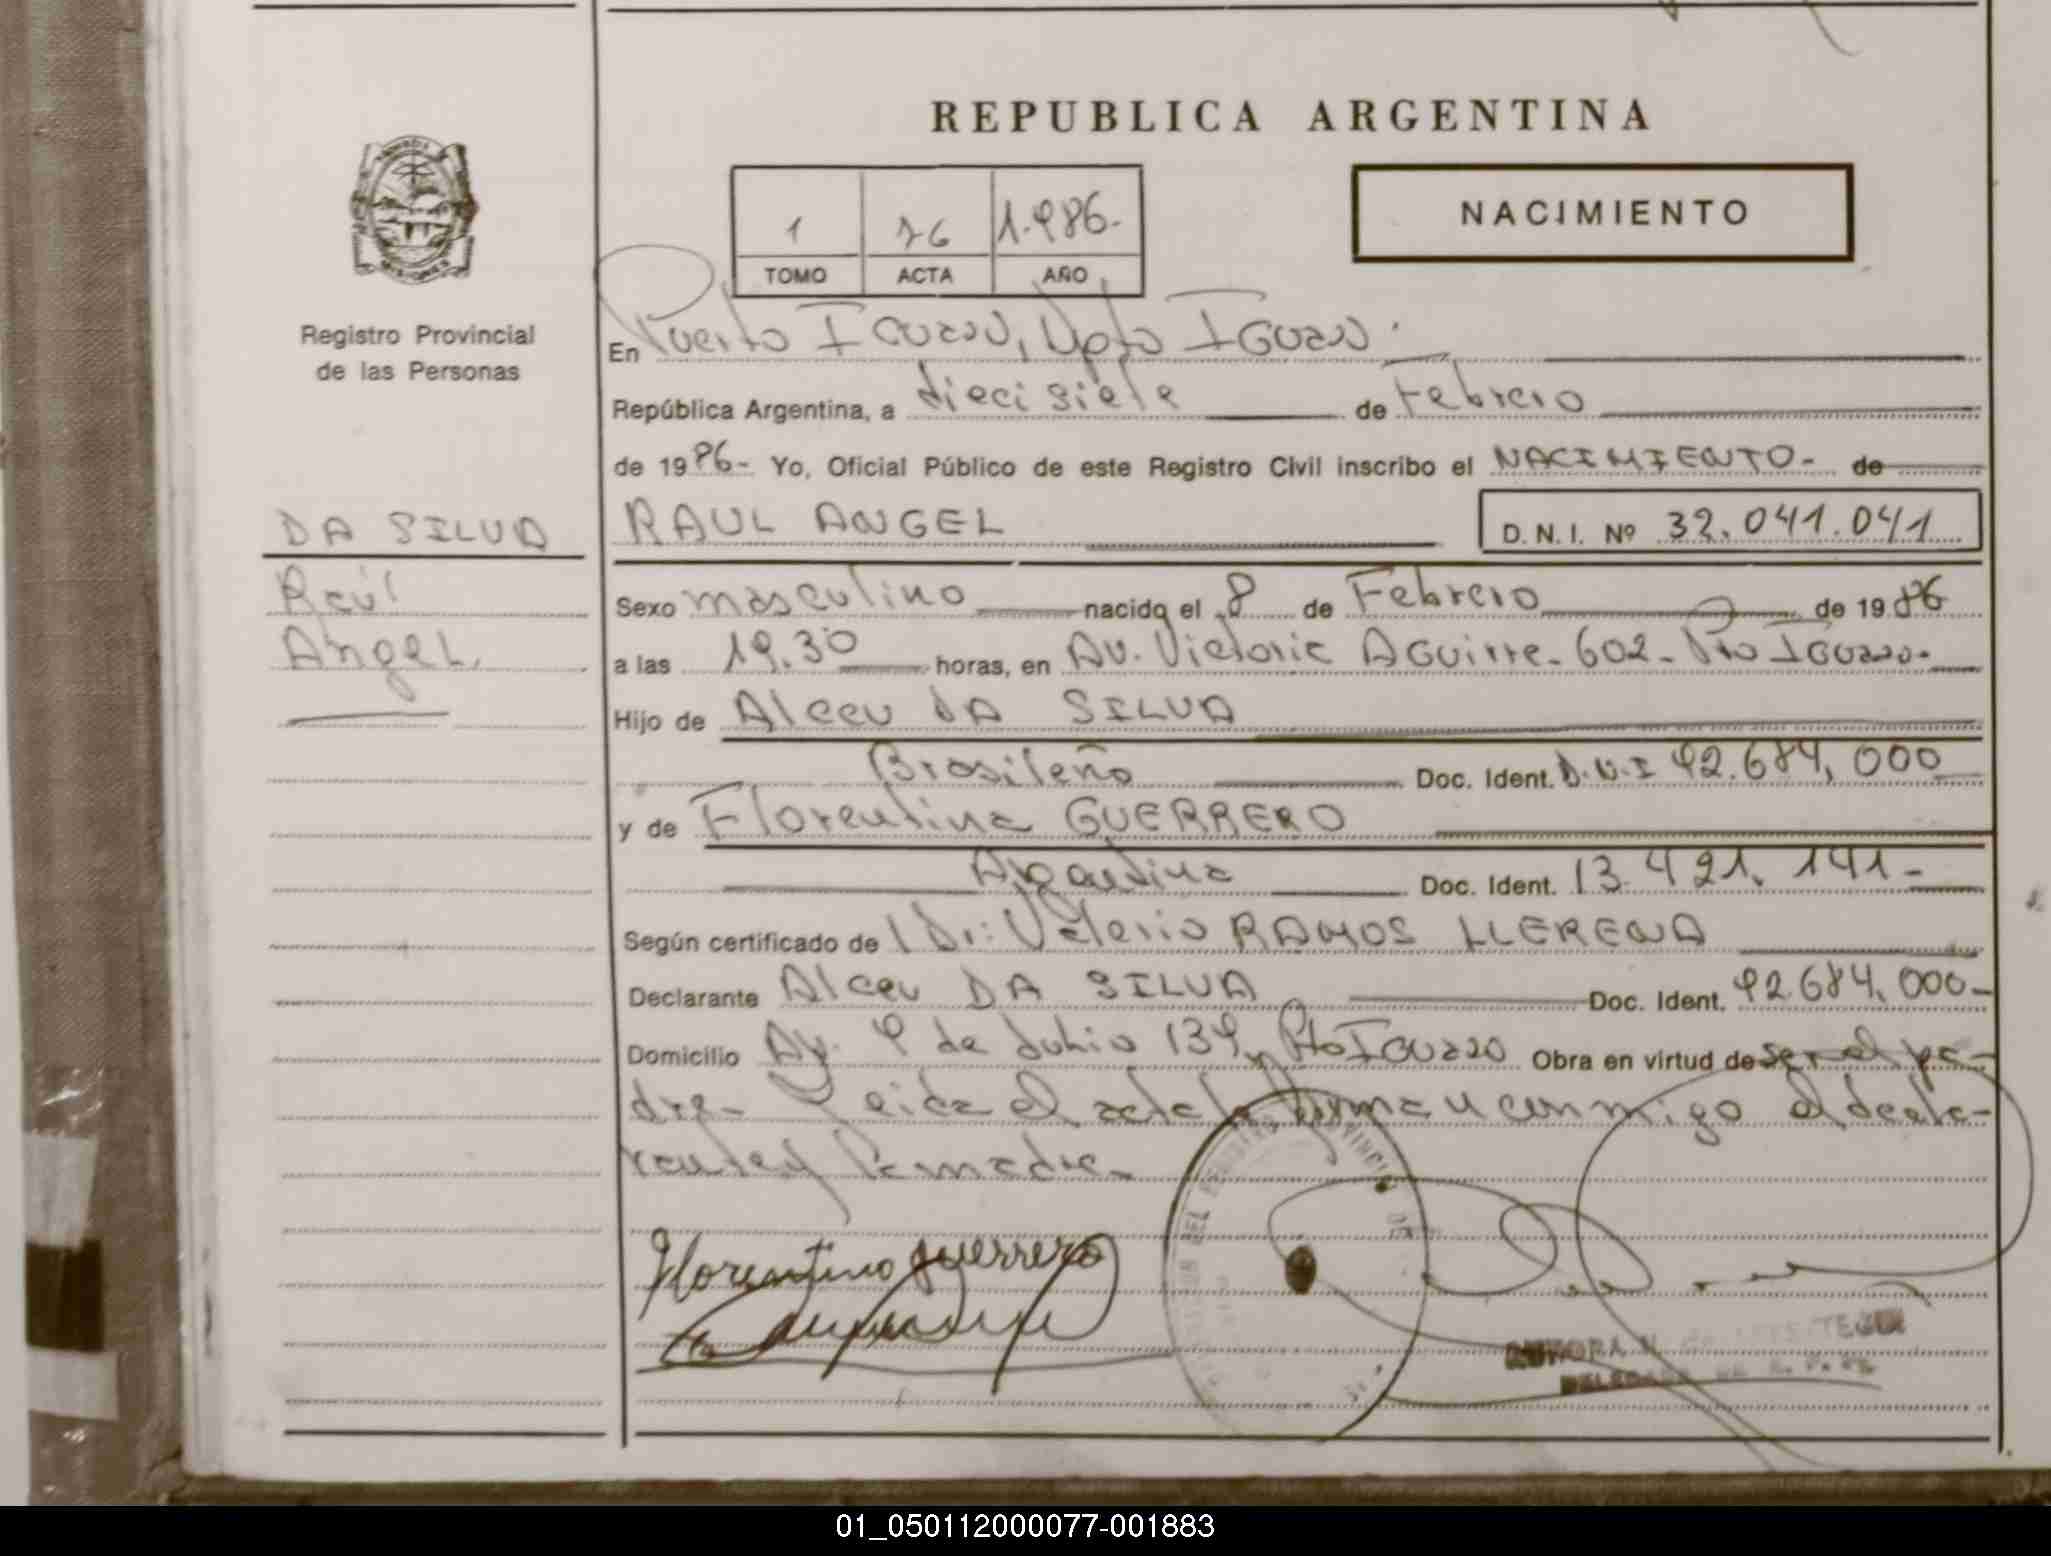 REPUBLICA ARGENTINA
1 76 1.986.-
TOMO ACTA AÑO
NACIMIENTO
MISIONES
Registro Provincial
de las Personas
En Puerto Iguazu, Dpto Iguazu.
República Argentina, a diecisiete de Febrero
de 1986- Yo, Oficial Público de este Registro Civil inscribo el NACIMIENTO- de
DA SILVA
Raúl
Angel.
RAUL ANGEL D.N.I. Nº 32.041.041
Sexo masculino nacido el 8 de Febrero de 1986
a las 19.30 horas, en Av. Victoria Aguirre- 602- Pto Iguazu-
Hijo de Alceu DA SILVA
Brasileño Doc. Ident. D.N.I 92.684.000
y de Florentina GUERRERO
Argentina Doc. Ident. 13.421.141-
Según certificado de Dr: Valerio RAMOS LLERENA
Declarante Alceu DA SILVA Doc. Ident. 92.684.000-
Domicilio Av. 9 de Julio 139, Pto Iguazu Obra en virtud de ser el pa-
dre- Leida el acta la firman conmigo el decla-
rante y la madre-
Florentina Guerrero
AURORA
DELEGADA DE R. P.
01_050112000077-001883